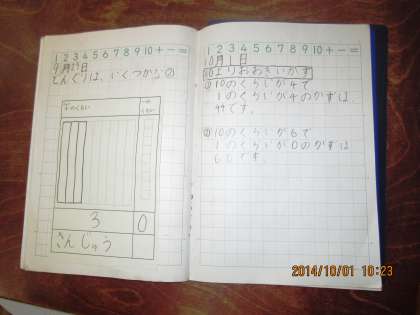 1 2 3 4 5 6 7 8 9 10 + − =
9月29日
どんぐりは、いくつかな②
十のくらい
一のくらい
3 0
さんじゅう
1 2 3 4 5 6 7 8 9 10 + − =
10月1日
10よりおおきいかず
① 10のくらいが4で
1のくらいが4のかずは
44です。
② 10のくらいが6で
1のくらいが0のかずは
60です。
2014/10/01 10:23